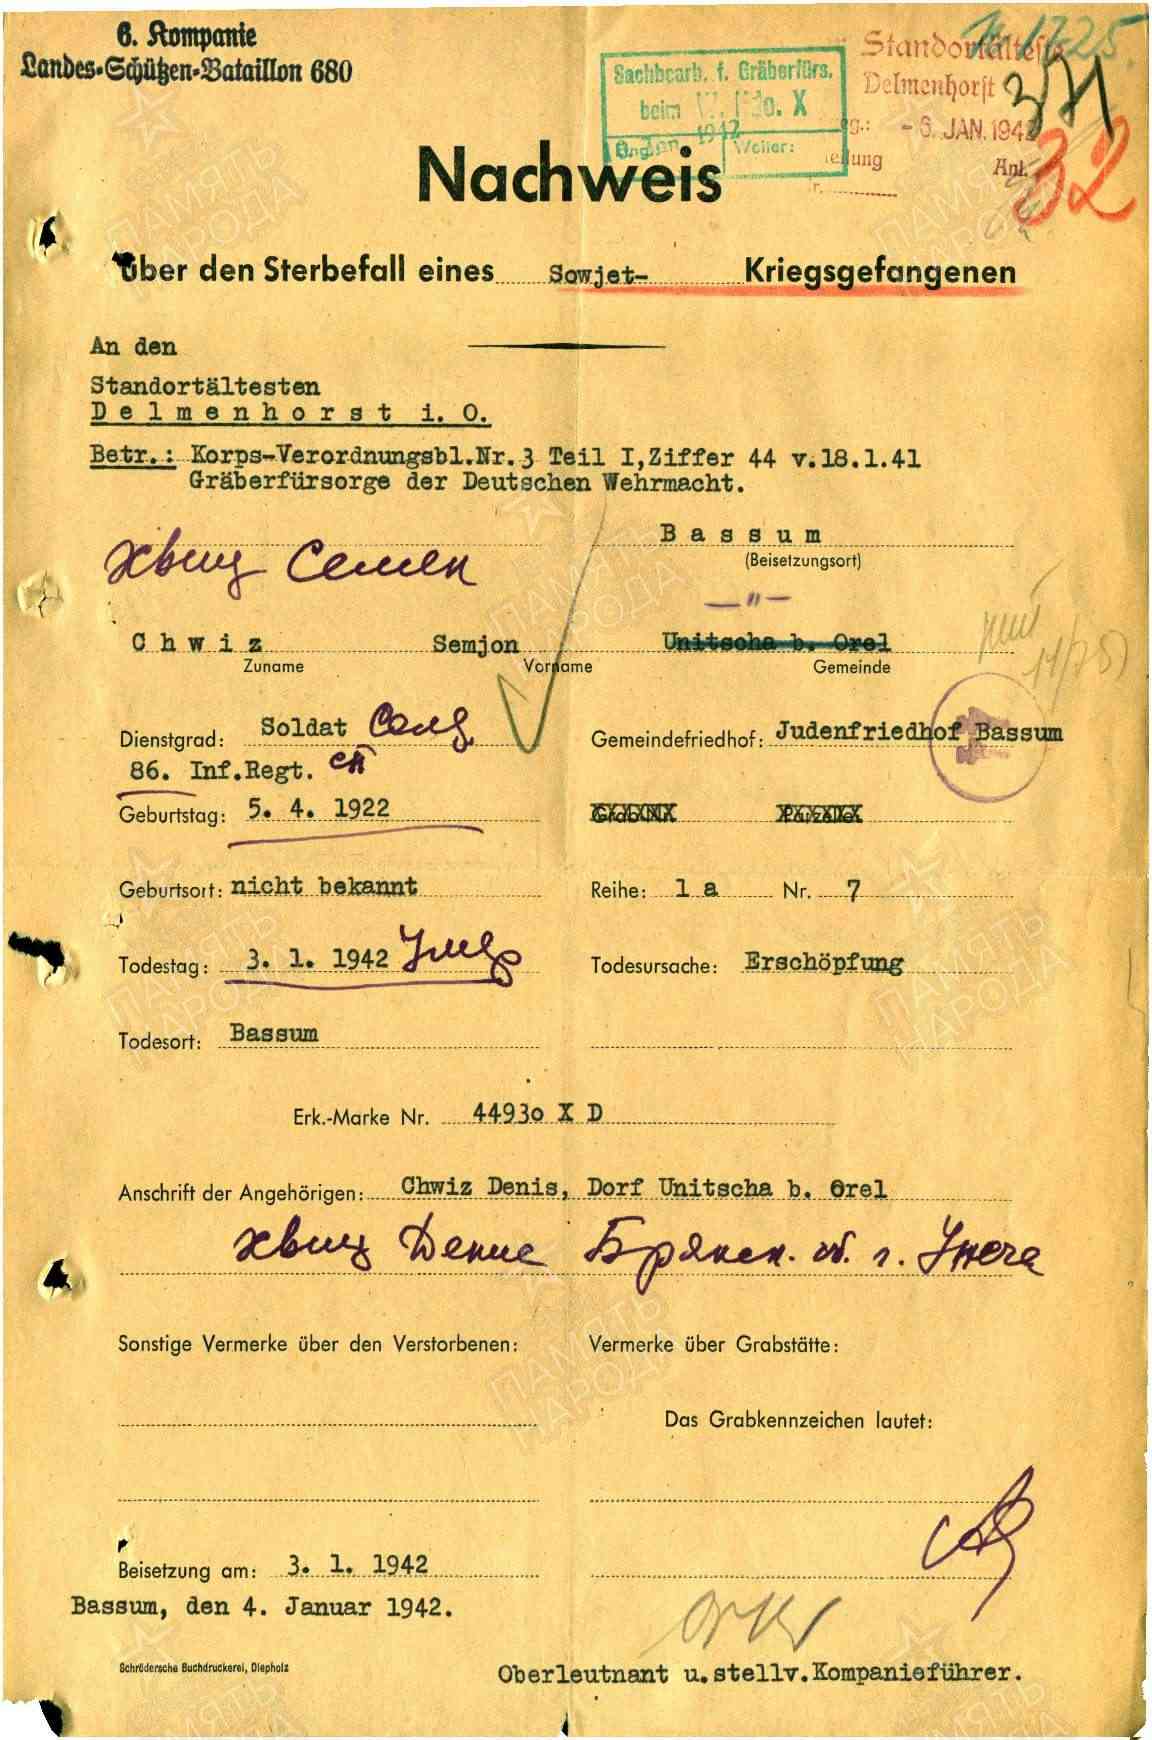 6. Kompanie
Landes-Schützen-Bataillon 680
Sachbearb. f. Gräberfürs.
beim W. Kdo. X
Eing. Jan. 1942 Weiter:
Standortälteste
Delmenhorst
- 6. JAN. 1942
Anl.
371
32
Nachweis
über den Sterbefall eines Sowjet- Kriegsgefangenen
An den
Standortältesten
Delmenhorst i. O.
Betr.: Korps-Verordnungsbl.Nr.3 Teil I,Ziffer 44 v.18.1.41
Gräberfürsorge der Deutschen Wehrmacht.
Хвиц Семен
Bassum
(Beisetzungsort)
—"—
Chwiz Semjon Unitscha b. Orel
Zuname Vorname Gemeinde
Dienstgrad: Soldat Солд Gemeindefriedhof: Judenfriedhof Bassum
86. Inf.Regt. сп
Geburtstag: 5. 4. 1922 Grab Nr. Parzelle
Geburtsort: nicht bekannt Reihe: 1 a Nr. 7
Todestag: 3. 1. 1942 Умер Todesursache: Erschöpfung
Todesort: Bassum
Erk.-Marke Nr. 4493o X D
Anschrift der Angehörigen: Chwiz Denis, Dorf Unitscha b. Orel
Хвиц Денис Брянск. об. г. Унеча
Sonstige Vermerke über den Verstorbenen: Vermerke über Grabstätte:
Das Grabkennzeichen lautet:
Beisetzung am: 3. 1. 1942
Bassum, den 4. Januar 1942.
Schrödersche Buchdruckerei, Diepholz
Oberleutnant u.stellv.Kompanieführer.
ПАМЯТЬ
НАРОДА